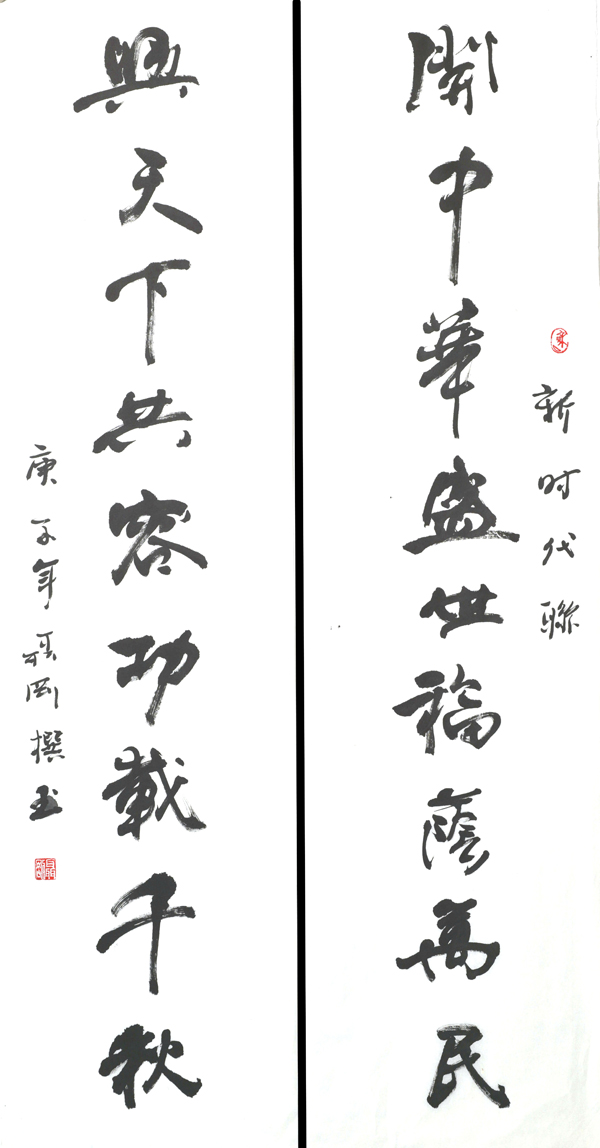 新时代聯
開中華盛世福蔭萬民
興天下共容功載千秋
庚子年剛撰書